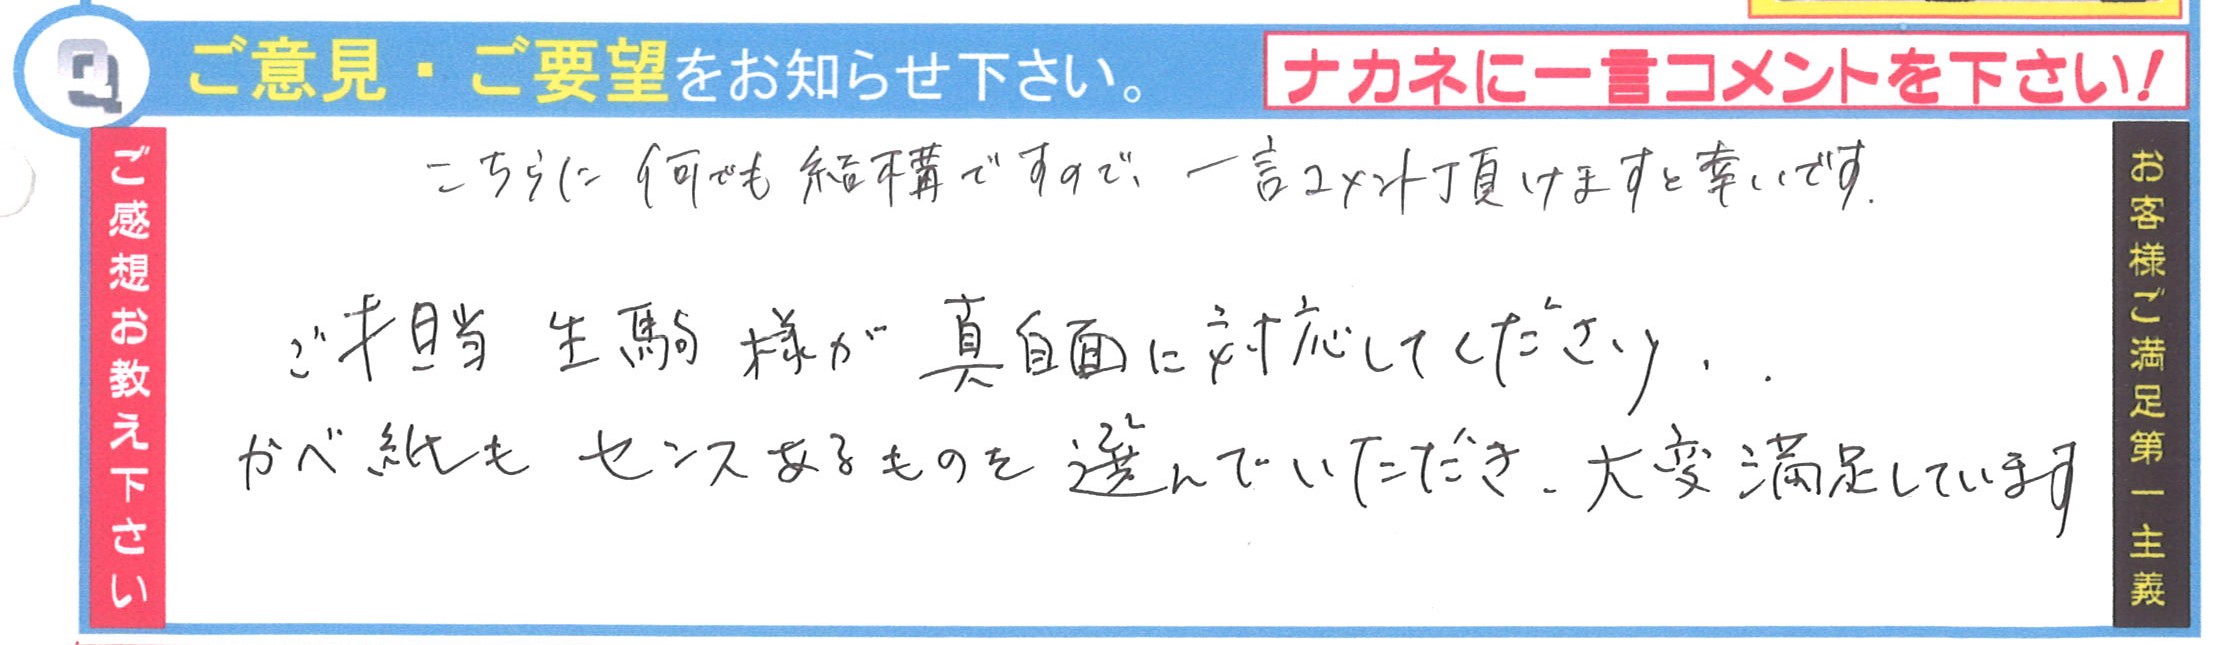 Q ご意見・ご要望をお知らせ下さい。
ナカネに一言コメントを下さい!
ご感想お教え下さい
こちらに何でも結構ですので、一言コメント頂けますと幸いです.
ご担当 生駒様が真自面に対応してくださり、.
かべ紙も センスあるものを選んでいただき、大変満足しています
お客様ご満足第一主義